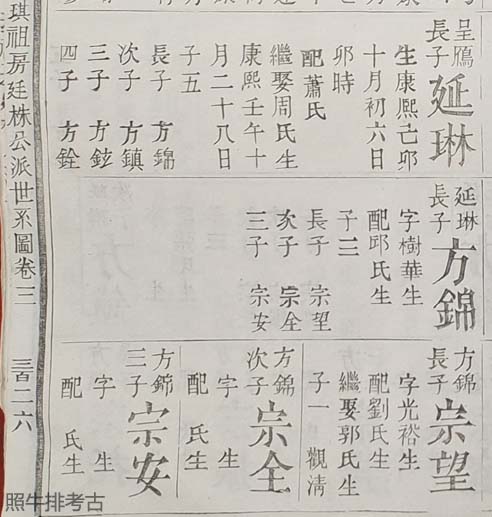 呈鴈
長子
延琳
生康熙己卯
十月初六日
卯時
配蕭氏
繼娶周氏生
康熙壬午十
月二十八日
子五
長子 方錦
次子 方鎮
三子 方鉉
四子 方銓
延琳
長子
方錦
字樹華生
配邱氏生
子三
長子 宗望
次子 宗全
三子 宗安
方錦
長子
宗望
字光裕生
配劉氏生
繼娶郭氏生
子一 觀清
方錦
次子
宗全
字 生
配 氏生
方錦
三子
宗安
字 生
配 氏生
琪祖房廷株公派世系圖卷三
三百二六
照牛排考古